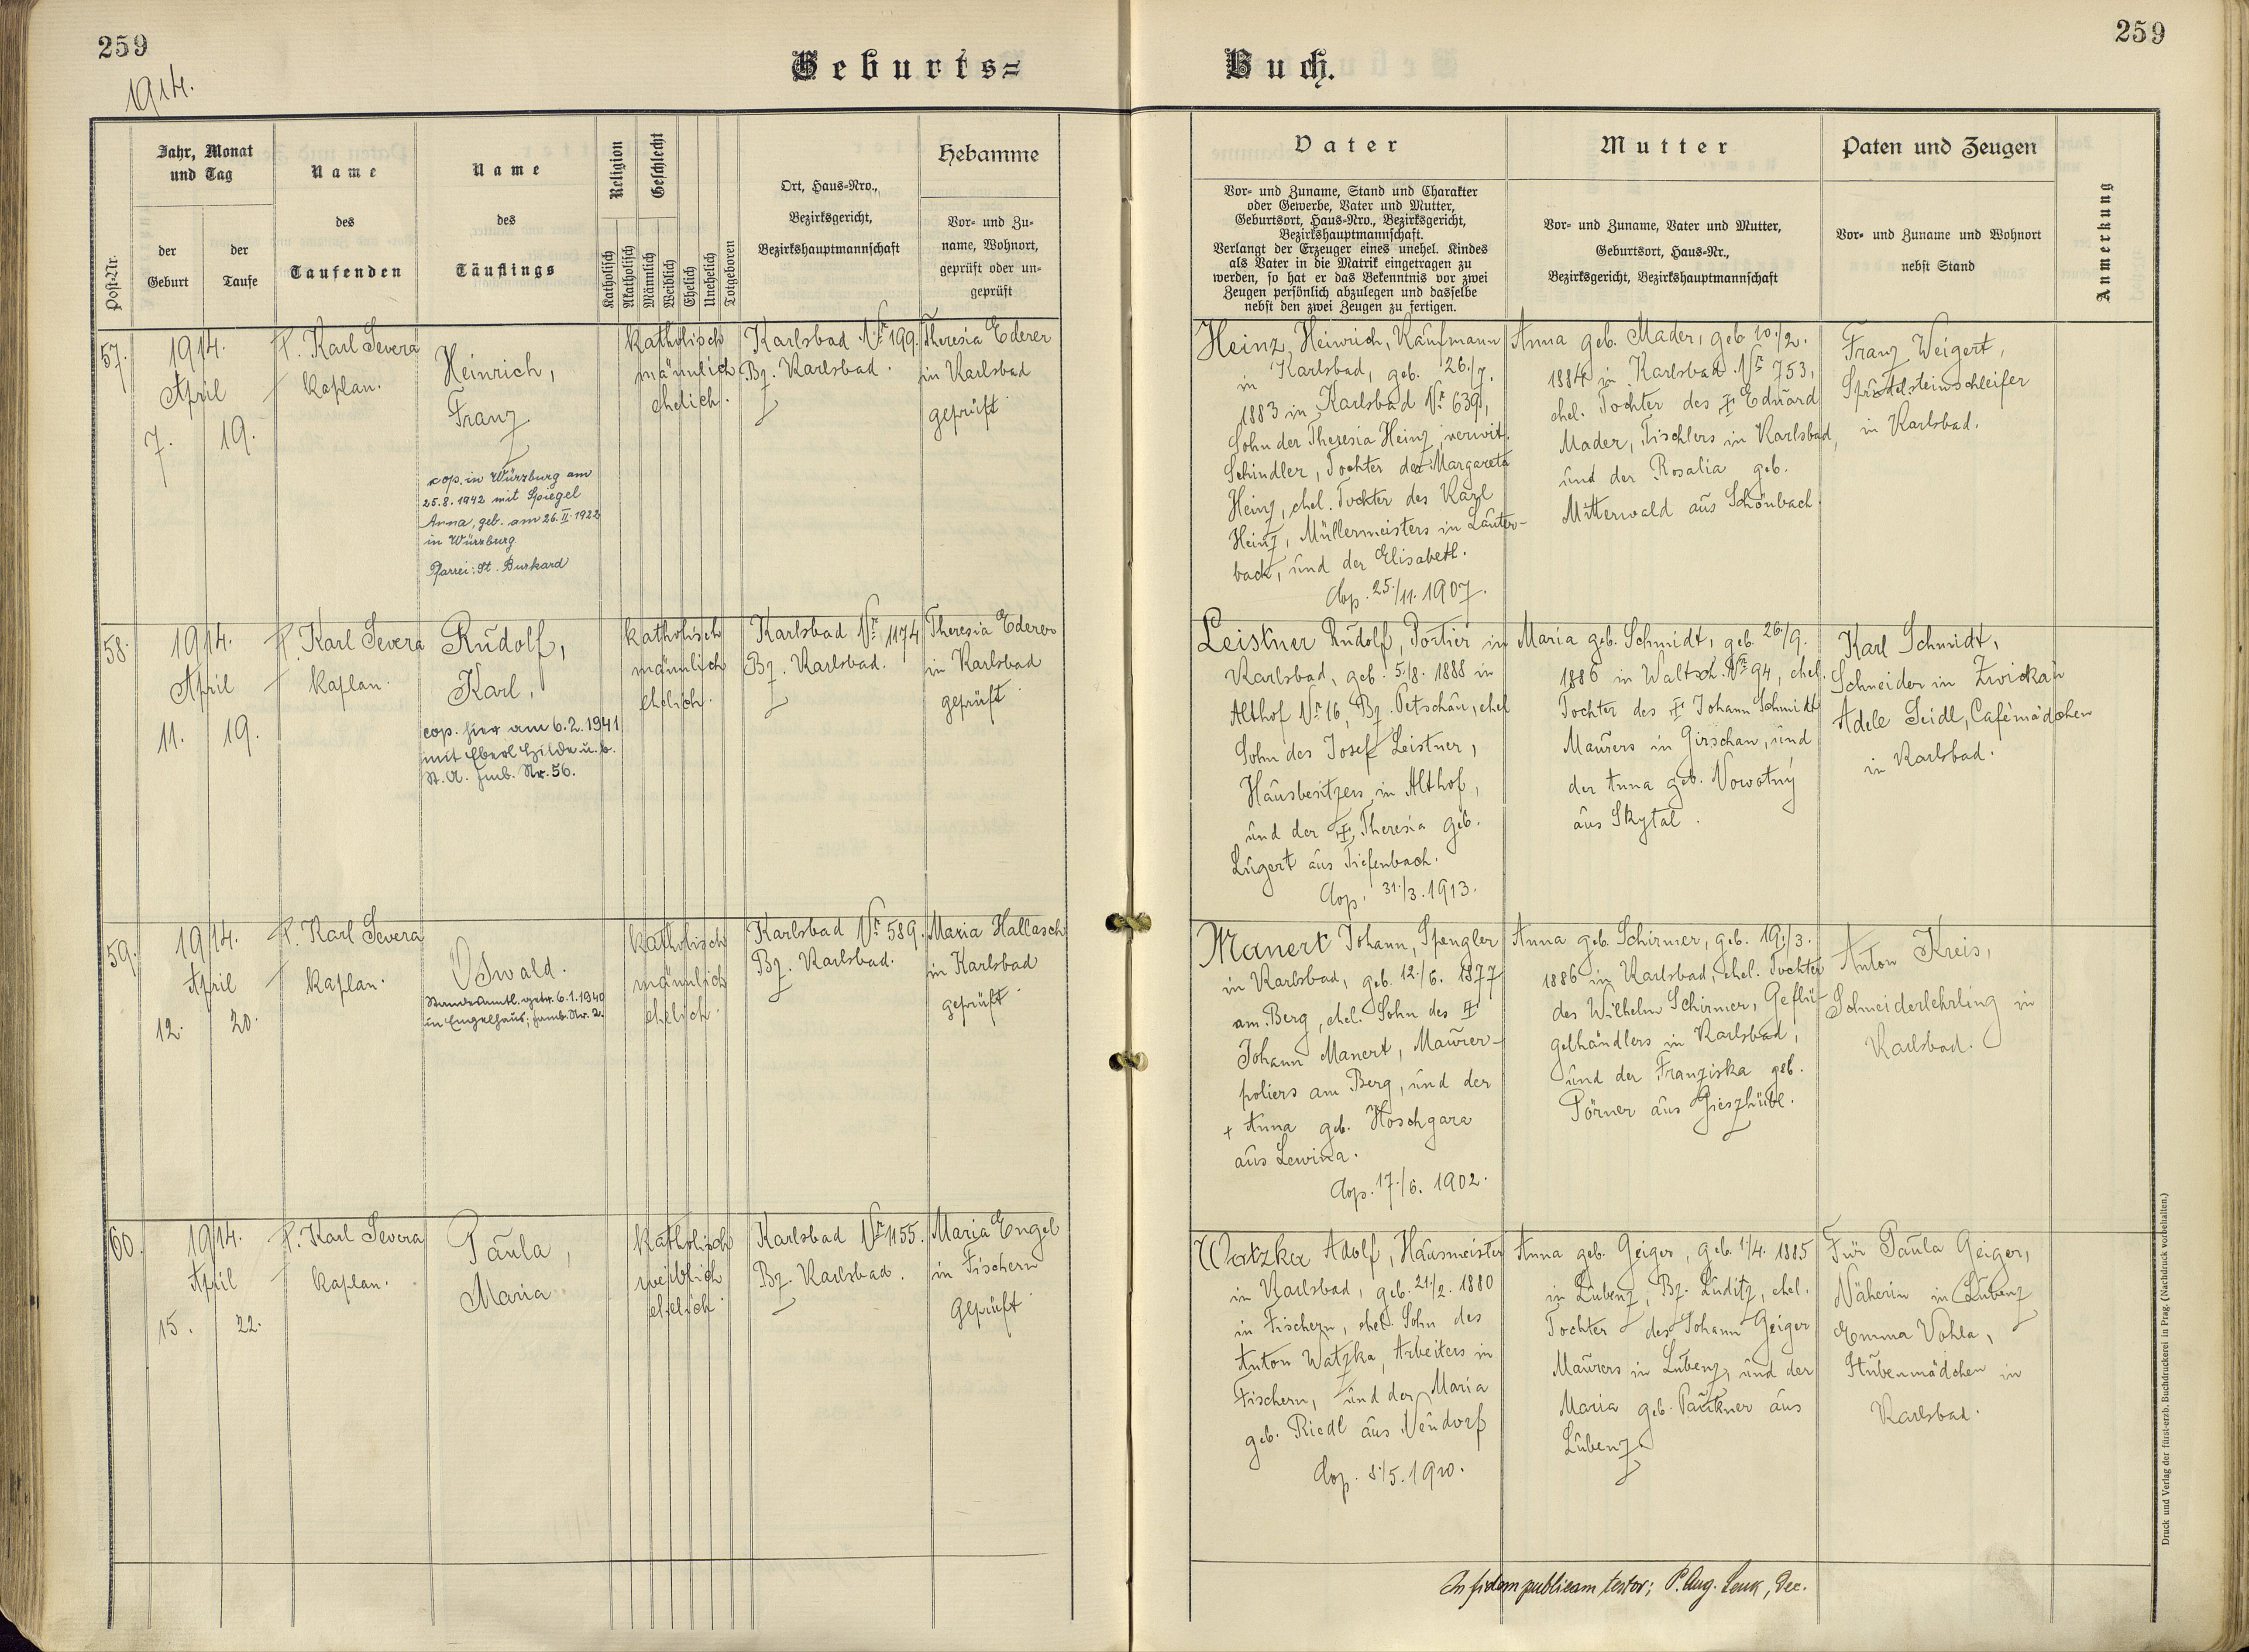 259
259
1914.
Geburts=
Buch.
Post-Nr.
Jahr, Monat
und Tag
der
Geburt
der
Taufe
Name
des
Taufenden
Name
des
Täuflings
Religion
Katholisch
Akatholisch
Geschlecht
Männlich
Weiblich
Ehelich
Unehelich
Totgeboren
Ort, Haus-Nro.,
Bezirksgericht,
Bezirkshauptmannschaft
Hebamme
Vor- und Zu-
name, Wohnort,
geprüft oder un-
geprüft
Vater
Vor- und Zuname, Stand und Charakter
oder Gewerbe, Vater und Mutter,
Geburtsort, Haus-Nro., Bezirksgericht,
Bezirkshauptmannschaft.
Verlangt der Erzeuger eines unehel. Kindes
als Vater in die Matrik eingetragen zu
werden, so hat er das Bekenntnis vor zwei
Zeugen persönlich abzulegen und dasselbe
nebst den zwei Zeugen zu fertigen.
Mutter
Vor- und Zuname, Vater und Mutter,
Geburtsort, Haus-Nr.,
Bezirksgericht, Bezirkshauptmannschaft
Paten und Zeugen
Vor- und Zuname und Wohnort
nebst Stand
Anmerkung
57.
1914.
April
7. 19.
P. Karl Severa
Kaplan.
Heinrich,
Franz
cop. in Würzburg am
25.8.1942 mit Spiegel
Anna, geb. am 26.II.1922
in Würzburg
Pfarrei: St. Burkard
katholisch
männlich
ehelich.
Karlsbad Nr. 199.
Bz. Karlsbad.
Theresia Ederer
in Karlsbad
geprüft
Heinz, Heinrich, Kaufmann
in Karlsbad, geb. 26./7.
1883 in Karlsbad Nr. 639,
Sohn der Theresia Heinz, verwit.
Schindler, Tochter der Margareta
Heinz, ehel. Tochter des Karl
Heinz, Müllermeisters in Lauter-
bach, und der Elisabeth.
Cop. 25./11. 1907.
Anna geb. Mader, geb. 10./2.
1884 in Karlsbad Nr. 753,
ehel. Tochter des ✝ Eduard
Mader, Tischlers in Karlsbad,
und der Rosalia geb.
Mitterwald aus Schönbach.
Franz Weigert,
Sprudelsteinschleifer
in Karlsbad.
58.
1914.
April
11. 19.
P. Karl Severa
Kaplan.
Rudolf,
Karl,
cop. hier am 6.2.1941
mit Eberl Hilde u. b.
St. A. Jmb. Nr. 56.
katholisch
männlich
ehelich.
Karlsbad Nr. 1174
Bz. Karlsbad.
Theresia Ederer
in Karlsbad
geprüft
Leistner Rudolf, Portier in
Karlsbad, geb. 5./8. 1888 in
Althof Nr. 16, Bz. Petschau, ehel
Sohn des Josef Leistner,
Hausbesitzers in Althof,
und der ✝ Theresia geb.
Lugert aus Tiefenbach.
Cop. 31./3. 1913.
Maria geb. Schmidt, geb. 26/9.
1886 in Waltsch Nr. 94, ehel.
Tochter des ✝ Johann Schmidt
Maurers in Girschau, und
der Anna geb. Nowotny
aus Skytal.
Karl Schmidt,
Schneider in Zwickau
Adele Seidl, Cafémädchen
in Karlsbad.
59.
1914.
April
12. 20.
P. Karl Severa
Kaplan.
Oswald.
Standesamtl. getr. 6.1.1940
in Engelhaus; Jamb. Nr. 2.
katholisch
männlich
ehelich.
Karlsbad Nr. 589.
Bz. Karlsbad.
Maria Hallasch
in Karlsbad
geprüft
Manert Johann, Spengler
in Karlsbad, geb. 12./6. 1877
am Berg, ehel. Sohn des ✝
Johann Manert, Maurer-
poliers am Berg, und der
+ Anna geb. Hoschgara
aus
Cop. 17./6. 1902.
Anna geb. Schirmer, geb. 19./3.
1886 in Karlsbad, ehel. Tochter
des Wilhelm Schirmer, Geflü-
gelhändlers in Karlsbad,
und der Franziska geb.
Pörner aus Gieszhübl.
Anton Kreis,
Schneiderlehrling in
Karlsbad.
60.
1914.
April
15. 22.
P. Karl Severa
Kaplan.
Paula,
Maria
katholisch
weiblich
ehelich.
Karlsbad Nr. 1155.
Bz. Karlsbad.
Maria Engel
in Fischern
geprüft
Watzka Adolf, Hausmeister
in Karlsbad, geb. 21./2. 1880
in Fischern, ehel. Sohn des
Anton Watzka, Arbeiters in
Fischern, und der Maria
geb. Riedl aus Neudorf
Cop. 8./5. 1910.
Anna geb. Geiger, geb. 1./4. 1885
in Lubenz, Bz. Luditz, ehel.
Tochter des Johann Geiger
Maurers in Lubenz, und der
Maria geb. Paukner aus
Lubenz
Für Paula Geiger,
Näherin in Lubenz
Emma Vohla,
Stubenmädchen in
Karlsbad.
In fidem publicam testor; P. Aug. Lenk, Dec.
Druck und Verlag der fürst-erzb. Buchdruckerei in Prag. (Nachdruck vorbehalten.)